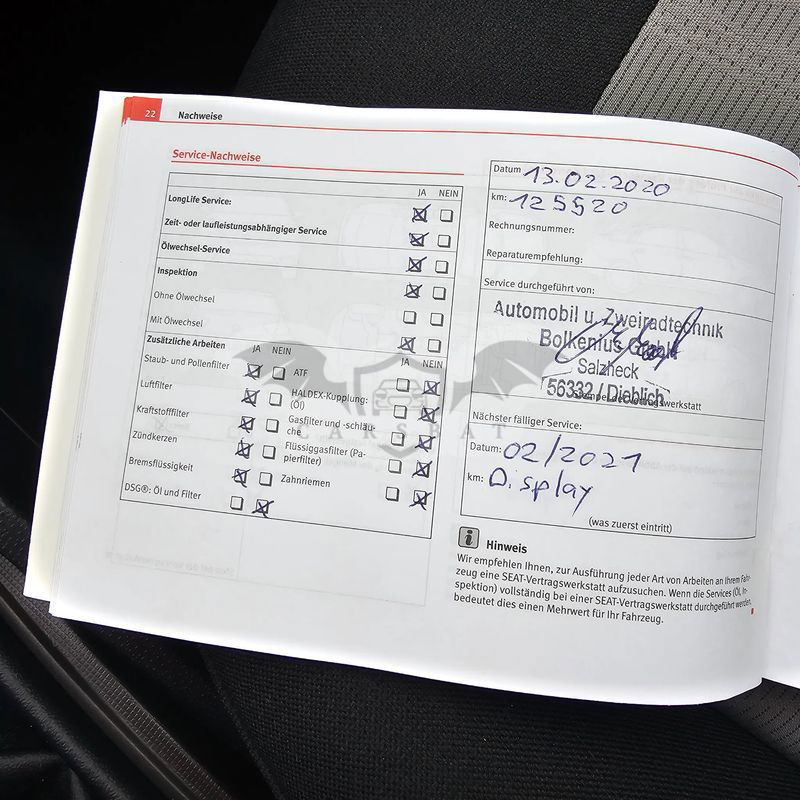 22 Nachweise
Service-Nachweise
JA NEIN
LongLife Service:
Zeit- oder laufleistungsabhängiger Service
Ölwechsel-Service
Inspektion
Ohne Ölwechsel
Mit Ölwechsel
Zusätzliche Arbeiten
JA NEIN
JA NEIN
Staub- und Pollenfilter
Luftfilter
Kraftstofffilter
Zündkerzen
Bremsflüssigkeit
DSG®: Öl und Filter
ATF
HALDEX-Kupplung:
(Öl)
Gasfilter und -schläu-
che
Flüssiggasfilter (Pa-
pierfilter)
Zahnriemen
CARSBAT
Datum 13.02.2020
km: 125520
Rechnungsnummer:
Reparaturempfehlung:
Service durchgeführt von:
Automobil u. Zweiradtechnik
Bolkenius GmbH
Salzheck
56332 / Dieblich
Stempel der Vertragswerkstatt
Nächster fälliger Service:
Datum: 02/2021
km: Display
(was zuerst eintritt)
i Hinweis
Wir empfehlen Ihnen, zur Ausführung jeder Art von Arbeiten an Ihrem Fahr-
zeug eine SEAT-Vertragswerkstatt aufzusuchen. Wenn die Services (Öl, In-
spektion) vollständig bei einer SEAT-Vertragswerkstatt durchgeführt werden,
bedeutet dies einen Mehrwert für Ihr Fahrzeug.